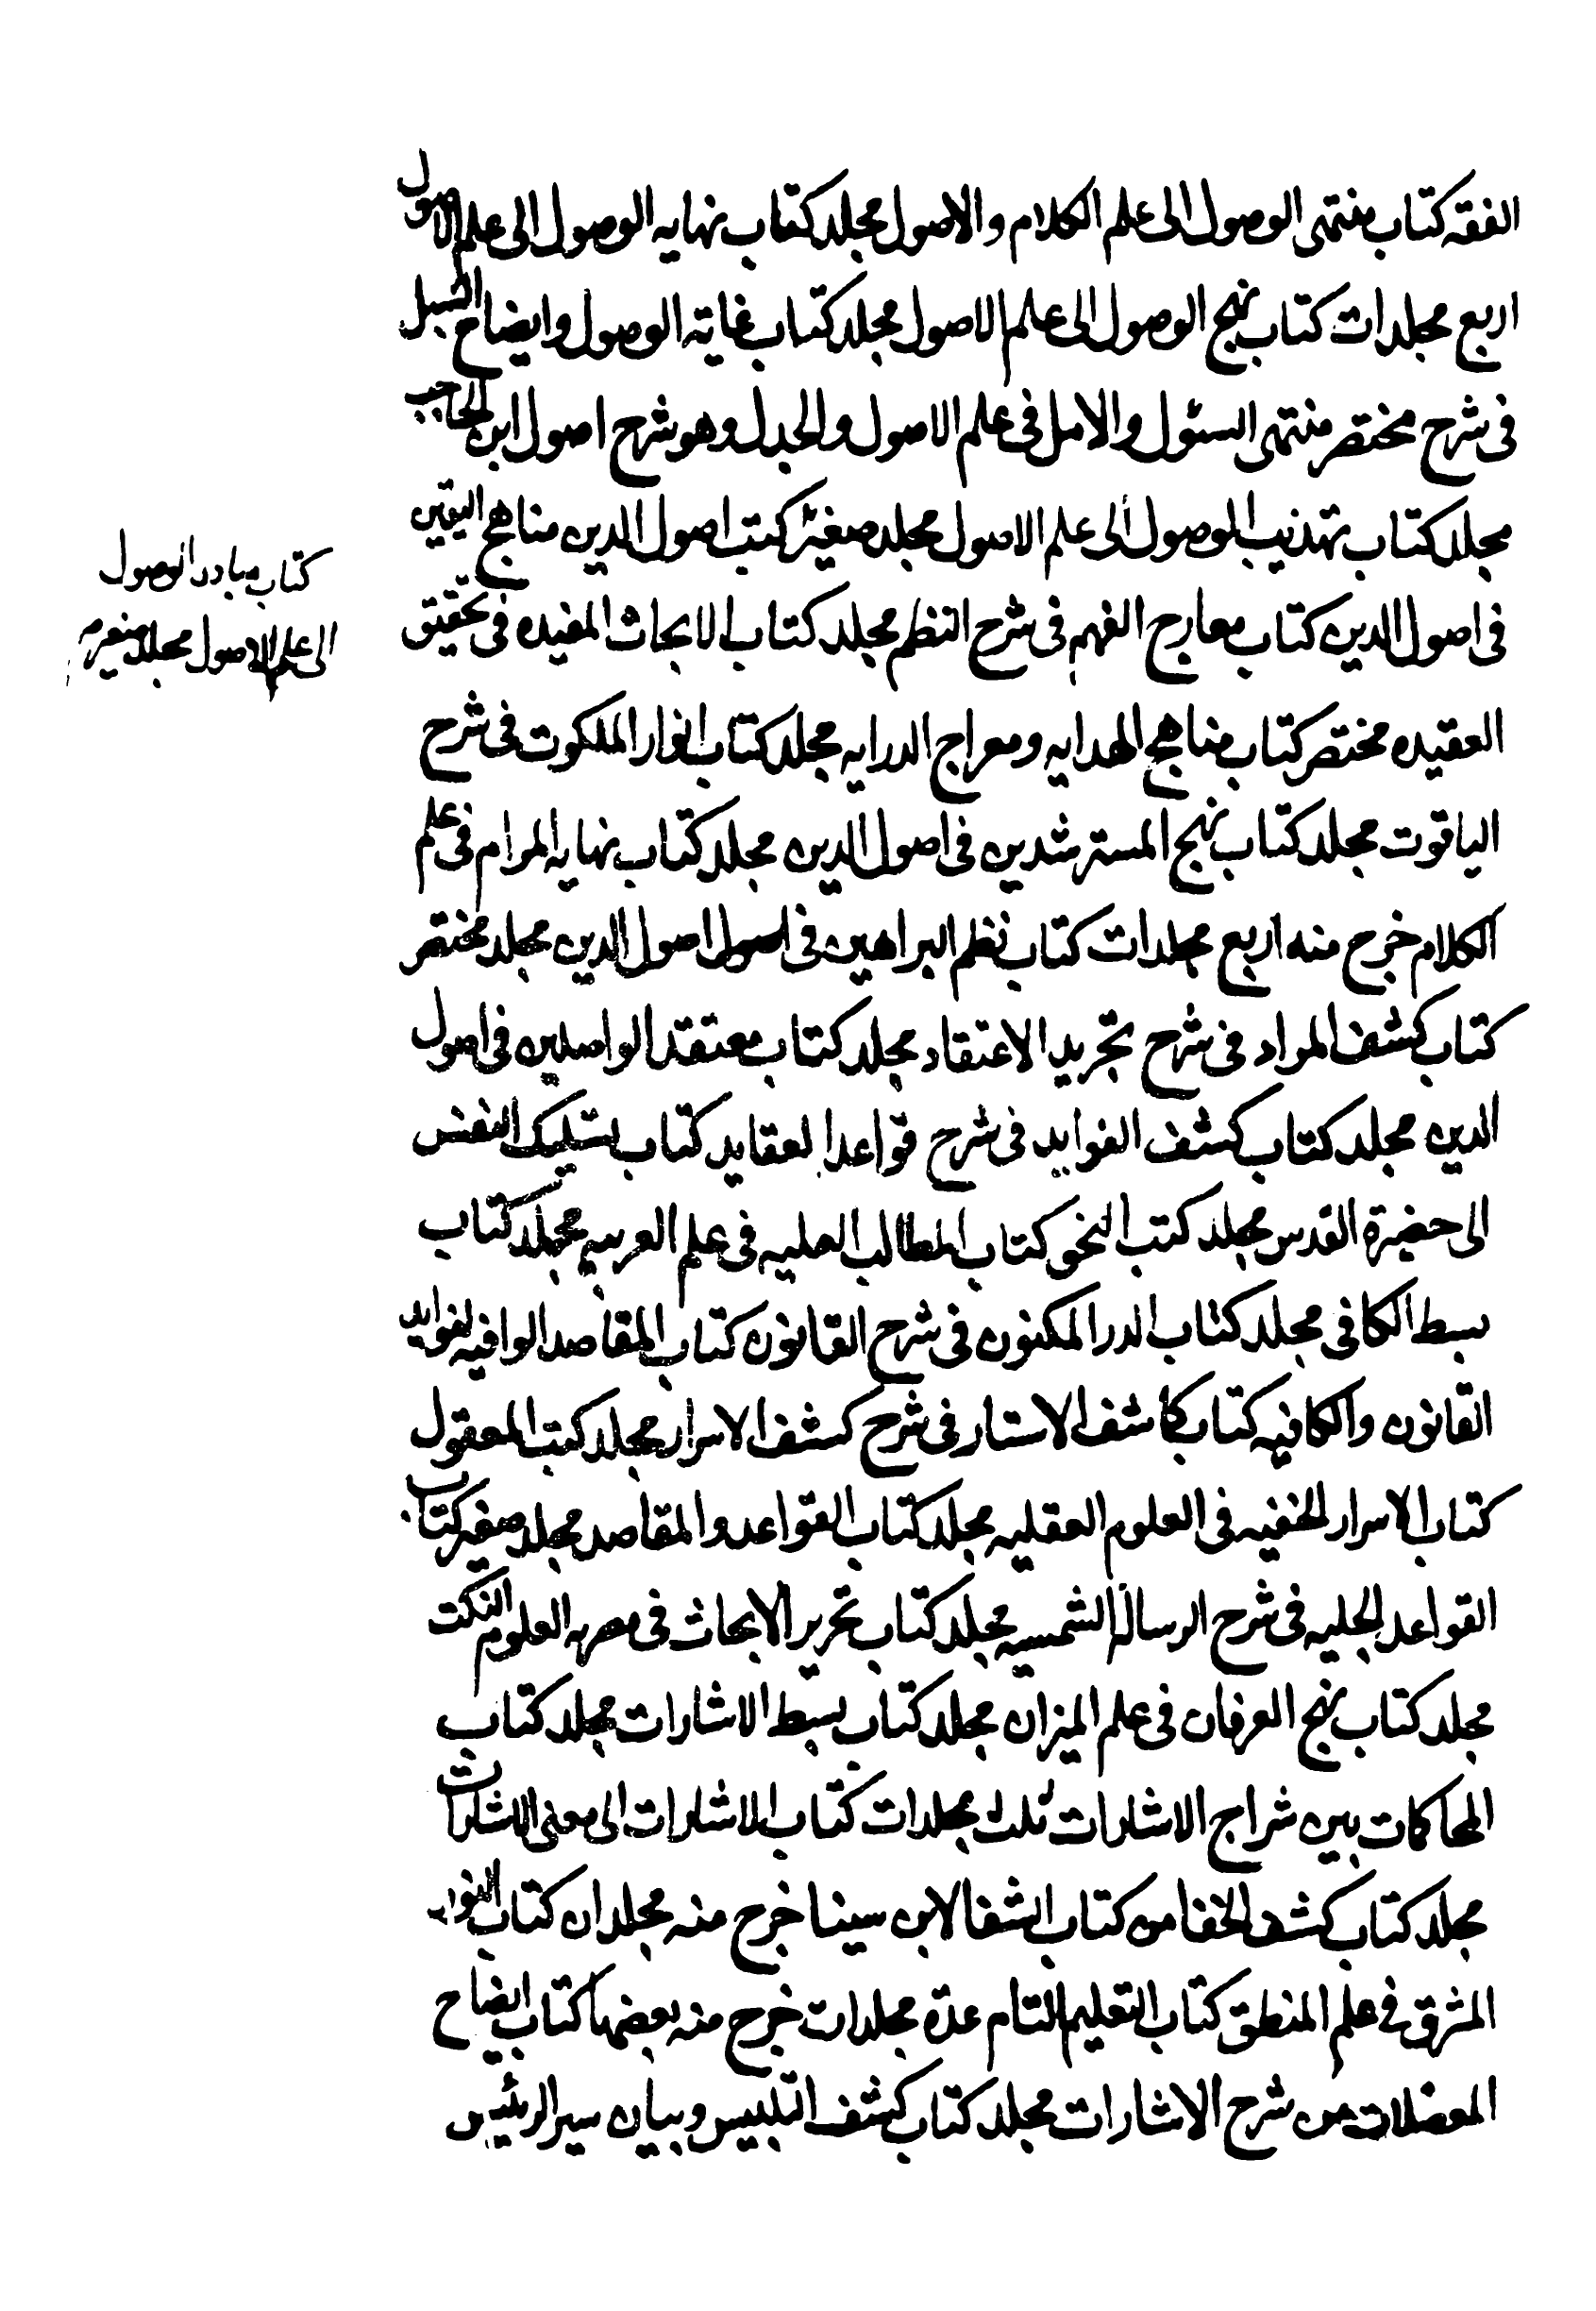 الفقه كتاب منتهى الوصول الى علم الكلام والاصول مجلد كتاب نهايه الوصول الى علم الاصول
اربع مجلدات كتاب نهج الوصول الى علم الاصول مجلد كتاب غاية الوصول وايضاح السبل
فى شرح مختصر منتهى السئول والامل فى علم الاصول والجدل وهو شرح اصول ابن الحاجب
مجلد كتاب تهذيب الوصول الى علم الاصول مجلد صغير كتب اصول الدين مناهج اليقين
فى اصول الدين كتاب معارج الفهم فى شرح النظم مجلد كتاب الابحاث المفيده فى تحقيق
العقيده مختصر كتاب مناهج الهدايه ومعراج الدرايه مجلد كتاب انوار الملكوت فى شرح
الياقوت مجلد كتاب نهج المسترشدين فى اصول الدين مجلد كتاب نهايه المرام فى علم
الكلام خرج منه اربع مجلدات كتاب نظم البراهين فى اصول الدين مجلد مختصر
كتاب كشف المراد فى شرح تجريد الاعتقاد مجلد كتاب معتقد الواصلين فى اصول
الدين مجلد كتاب كشف الفوايد فى شرح قواعد العقايد كتاب تسليك النفس
الى حضيرة القدس مجلد كتب النحو كتاب المطالب العليه فى علم العربيه مجلد كتاب
بسط الكافى مجلد كتاب الدر المكنون فى شرح القانون كتاب المقاصد الوافيه لفوايد
القانون والكافيه كتاب كاشف الاستار فى شرح كشف الاسرار مجلد كتب المعقول
كتاب الاسرار الخفيه فى العلوم العقليه مجلد كتاب القواعد والمقاصد مجلد صغير كتاب
القواعد الجليه فى شرح الرسالة الشمسيه مجلد كتاب تحرير الابحاث فى معرفه العلوم الثلث
مجلد كتاب نهج العرفان فى علم الميزان مجلد كتاب بسط الاشارات مجلد كتاب
المحاكمات بين شراح الاشارات ثلث مجلدات كتاب الاشارات الى معنى الاشارات
مجلد كتاب كشف الخفا من كتاب الشفا لابن سينا خرج منه مجلدان كتاب النور
المشرق فى علم المنطق كتاب التعليم التام عدة مجلدات خرج منه بعضها كتاب ايضاح
المعضلات من شرح الاشارات مجلد كتاب كشف التلبيس وبيان سير الرئيس
كتاب مبادى الوصول
الى علم الاصول مجلد صغير